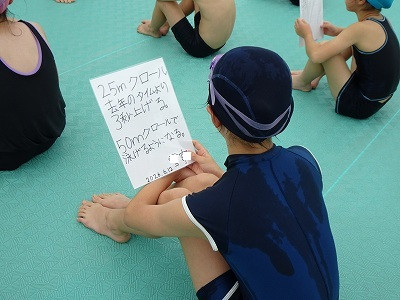 25mクロール
去年のタイムより
3秒上げる。
50mクロールで
泳げるようになる。